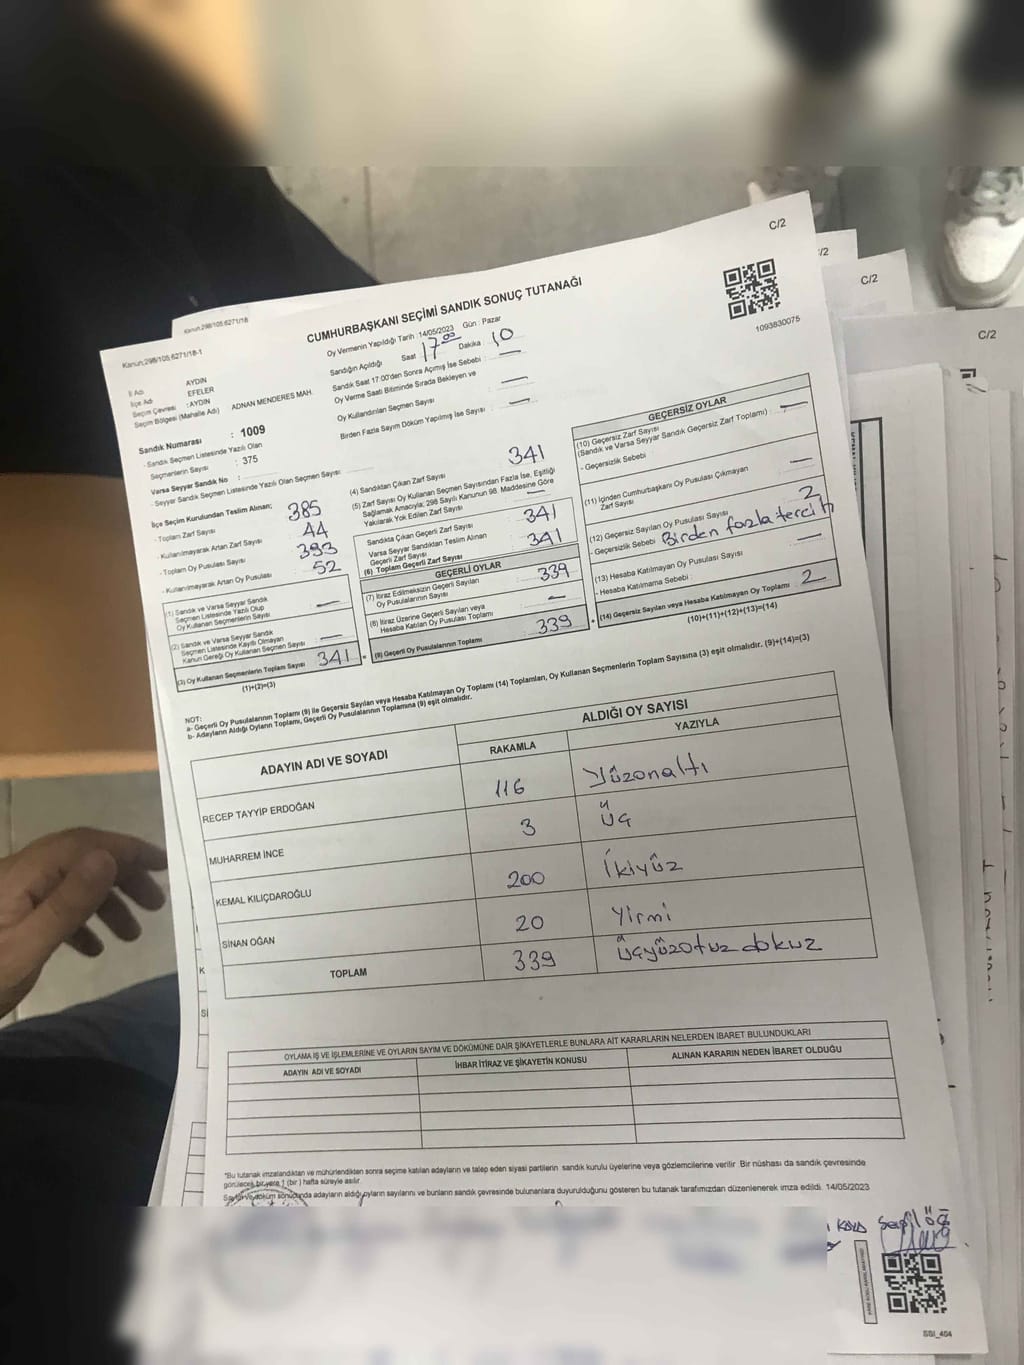 C/2
/2
C/2
C/2
Kanun:298/105,6271/18
Kanun:298/105,6271/18-1
CUMHURBAŞKANI SEÇİMİ SANDIK SONUÇ TUTANAĞI
1093830075
Oy Vermenin Yapıldığı Tarih : 14/05/2023 Gün : Pazar
Sandığın Açıldığı Saat 17.00 Dakika 10
Sandık Saat 17.00'den Sonra Açmış İse Sebebi : —
Oy Verme Saati Bitiminde Sırada Bekleyen ve
Oy Kullandırılan Seçmen Sayısı : —
Birden Fazla Sayım Döküm Yapılmış İse Sayısı : —
İl Adı AYDIN
İlçe Adı EFELER
Seçim Çevresi : AYDIN
Seçim Bölgesi (Mahalle Adı) ADNAN MENDERES MAH.
Sandık Numarası : 1009
- Sandık Seçmen Listesinde Yazılı Olan
Seçmenlerin Sayısı : 375
Varsa Seyyar Sandık No :
- Seyyar Sandık Seçmen Listesinde Yazılı Olan Seçmen Sayısı
İlçe Seçim Kurulundan Teslim Alınan;
- Toplam Zarf Sayısı 385
- Kullanılmayarak Artan Zarf Sayısı 44
- Toplam Oy Pusulası Sayısı 393
- Kullanılmayarak Artan Oy Pusulası 52
(1) Sandık ve Varsa Seyyar Sandık
Seçmen Listesinde Yazılı Olup
Oy Kullanan Seçmenlerin Sayısı : —
(2) Sandık ve Varsa Seyyar Sandık
Seçmen Listesinde Kayıtlı Olmayan
Kanun Gereği Oy Kullanan Seçmen Sayısı : —
(3) Oy Kullanan Seçmenlerin Toplam Sayısı 341
(1)+(2)=(3)
(4) Sandıktan Çıkan Zarf Sayısı 341
(5) Zarf Sayısı Oy Kullanan Seçmen Sayısından Fazla İse, Eşitliği
Sağlamak Amacıyla; 298 Sayılı Kanunun 98. Maddesine Göre
Yakılarak Yok Edilen Zarf Sayısı : —
Sandıkta Çıkan Geçerli Zarf Sayısı 341
Varsa Seyyar Sandıktan Teslim Alınan
Geçerli Zarf Sayısı
(6) Toplam Geçerli Zarf Sayısı 341
GEÇERLİ OYLAR
(7) İtiraz Edilmeksizin Geçerli Sayılan
Oy Pusulalarının Sayısı : 339
(8) İtiraz Üzerine Geçerli Sayılan veya
Hesaba Katılan Oy Pusulası Toplamı : —
(9) Geçerli Oy Pusulalarının Toplamı 339
GEÇERSİZ OYLAR
(10) Geçersiz Zarf Sayısı
(Sandık ve Varsa Seyyar Sandık Geçersiz Zarf Toplamı) : —
- Geçersizlik Sebebi :
(11) İçinden Cumhurbaşkanı Oy Pusulası Çıkmayan
Zarf Sayısı : —
(12) Geçersiz Sayılan Oy Pusulası Sayısı 2
- Geçersizlik Sebebi Birden fazla tercih
(13) Hesaba Katılmayan Oy Pusulası Sayısı : —
- Hesaba Katılmama Sebebi :
(14) Geçersiz Sayılan veya Hesaba Katılmayan Oy Toplamı : 2
(10)+(11)+(12)+(13)=(14)
NOT:
a- Geçerli Oy Pusulalarının Toplamı (9) ile Geçersiz Sayılan veya Hesaba Katılmayan Oy Toplamı (14) Toplamları, Oy Kullanan Seçmenlerin Toplam Sayısına (3) eşit olmalıdır. (9)+(14)=(3)
b- Adayların Aldığı Oyların Toplamı, Geçerli Oy Pusulalarının Toplamına (9) eşit olmalıdır.
ADAYIN ADI VE SOYADI ALDIĞI OY SAYISI
RAKAMLA YAZIYLA
RECEP TAYYİP ERDOĞAN 116 Yüzonaltı
MUHARREM İNCE 3 üç
KEMAL KILIÇDAROĞLU 200 İkiyüz
SİNAN OĞAN 20 Yirmi
TOPLAM 339 üçyüzotuz dokuz
OYLAMA İŞ VE İŞLEMLERİNE VE OYLARIN SAYIM VE DÖKÜMÜNE DAİR ŞİKAYETLERLE BUNLARA AİT KARARLARIN NELERDEN İBARET BULUNDUKLARI
ADAYIN ADI VE SOYADI İHBAR İTİRAZ VE ŞİKAYETİN KONUSU ALINAN KARARIN NEDEN İBARET OLDUĞU
*Bu tutanak imzalandıktan ve mühürlendikten sonra seçime katılan adayların ve talep eden siyasi partilerin sandık kurulu üyelerine veya gözlemcilerine verilir. Bir nüshası da sandık çevresinde
görülecek bir yere 1 (bir) hafta süreyle asılır.
Sayım ve döküm sonucunda adayların aldığı oyların sayılarını ve bunların sandık çevresinde bulunanlara duyurulduğunu gösteren bu tutanak tarafımızdan düzenlenerek imza edildi. 14/05/2023
SSI_404